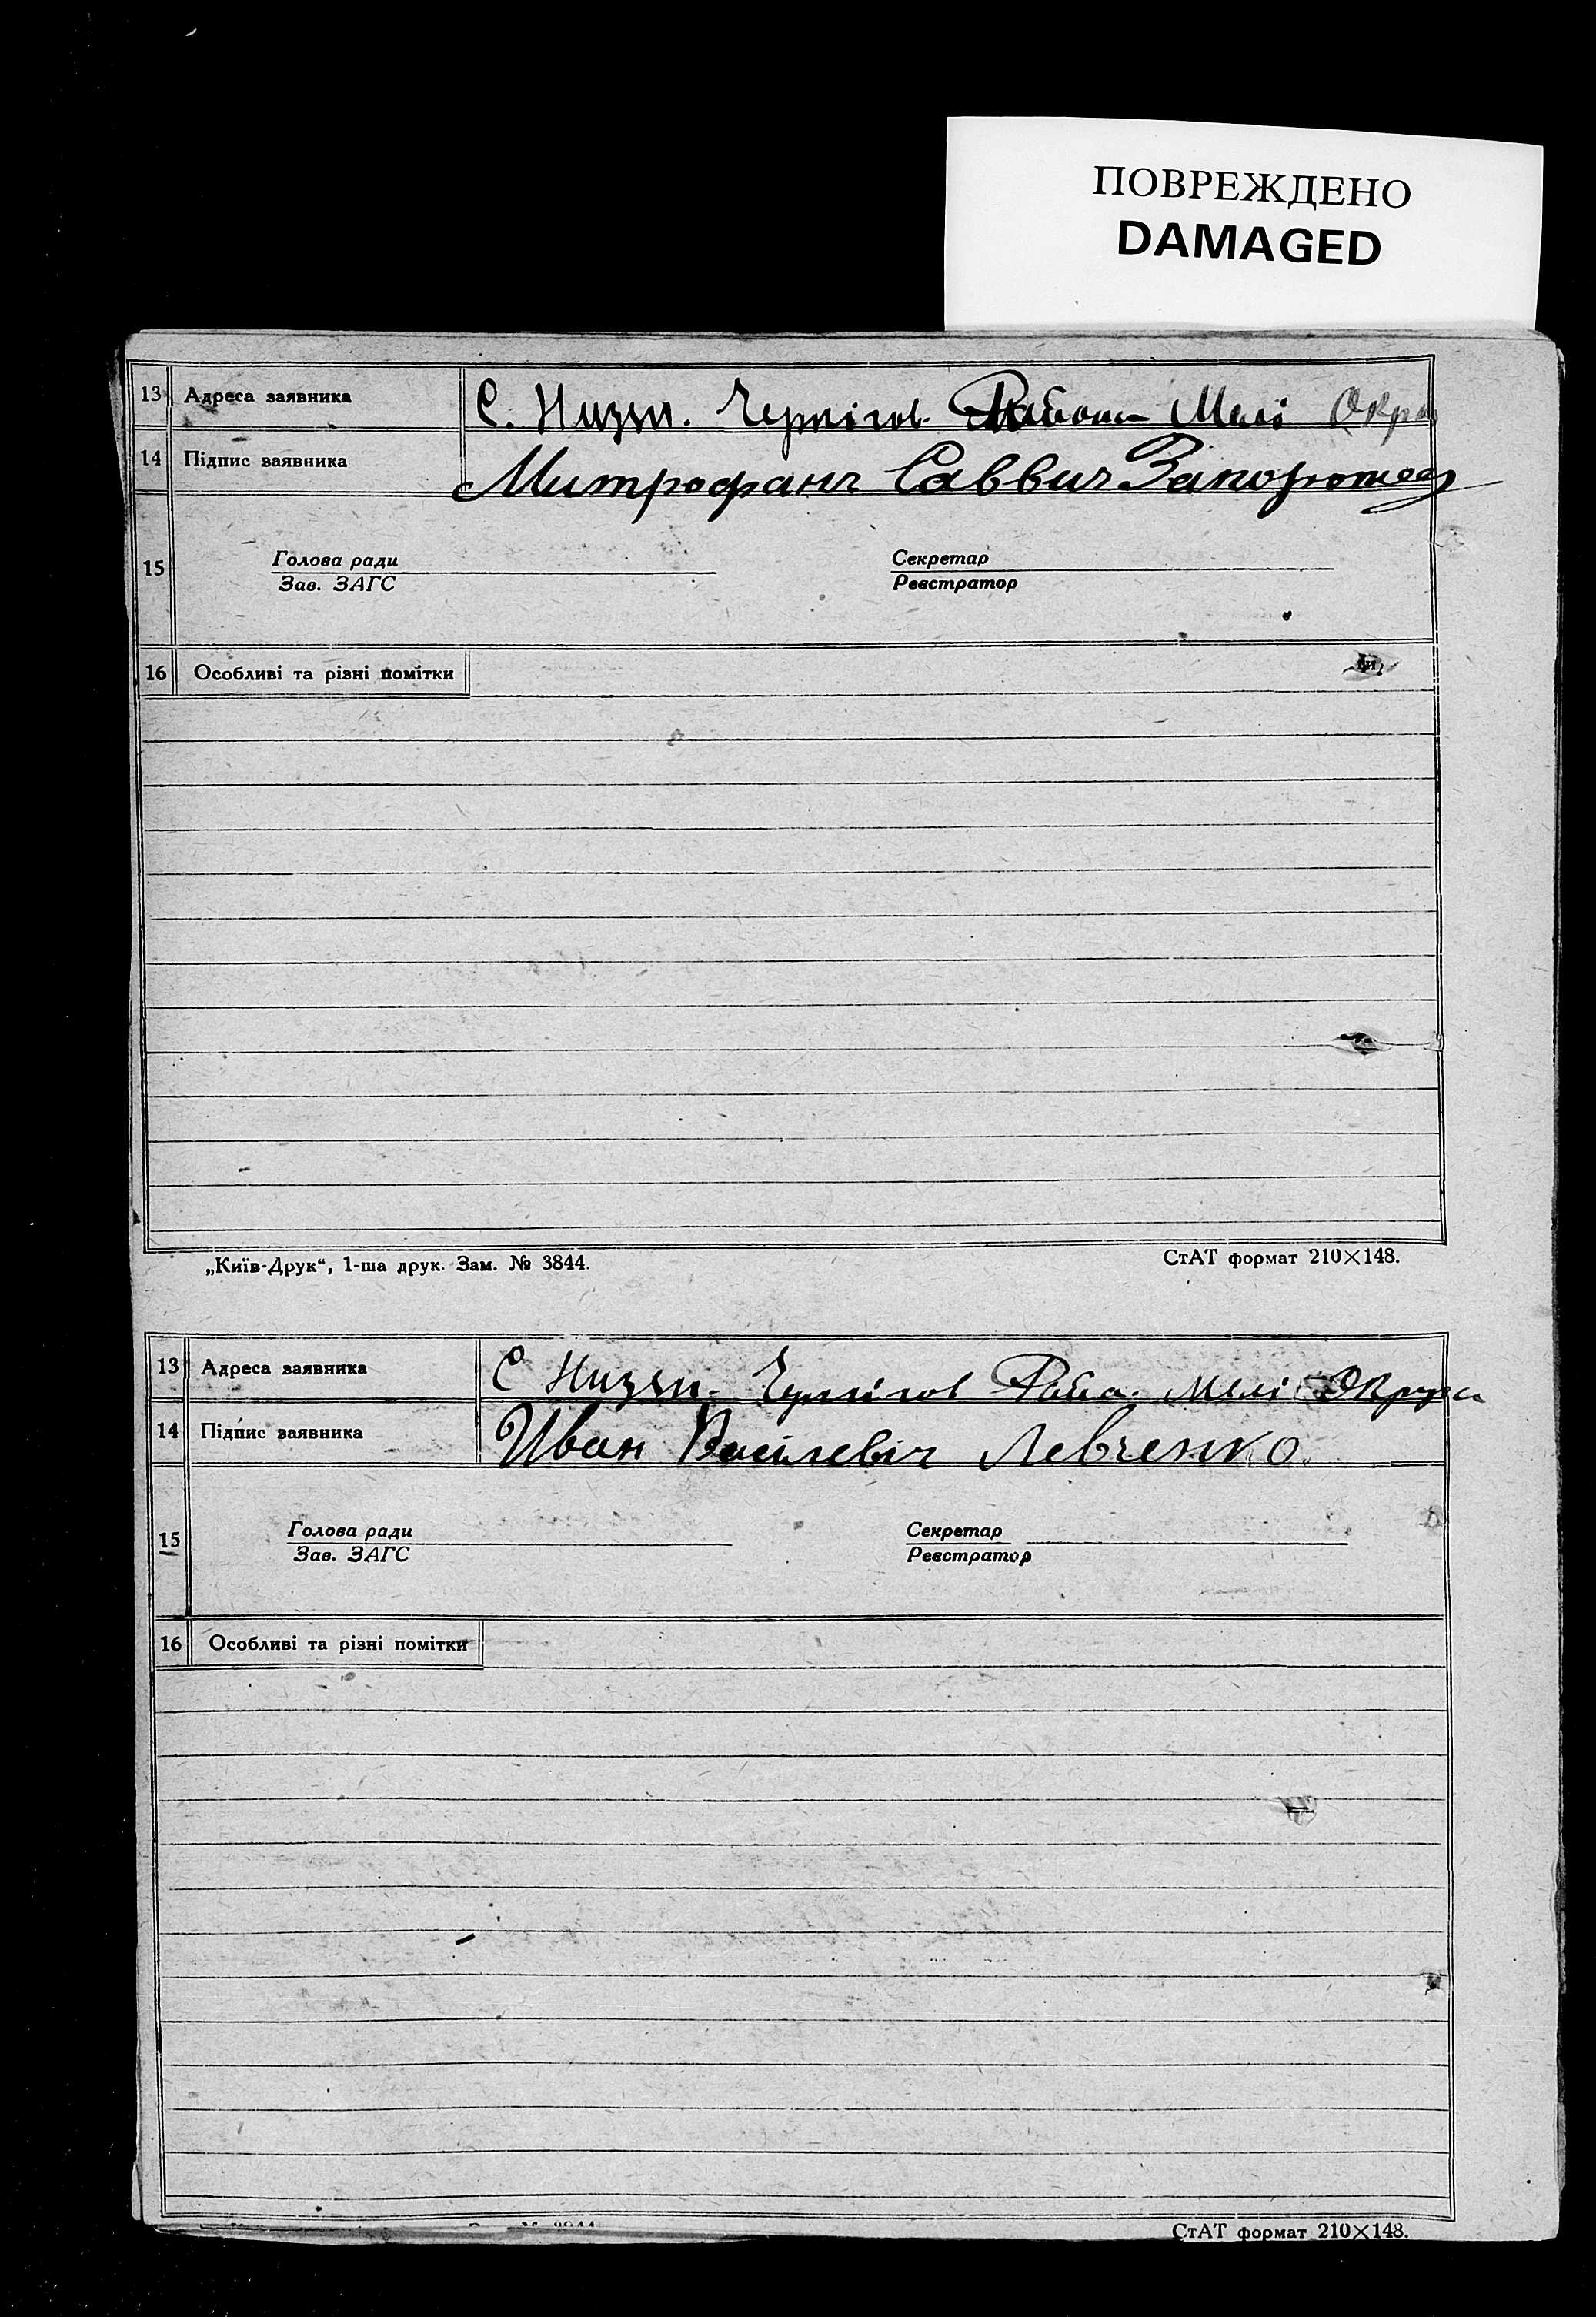 ПОВРЕЖДЕНО
DAMAGED
13 Адреса заявника С. Низян. Чернігов. Мелі Окру
14 Підпис заявника Митрофанъ Саввич Запорожец
15 Голова ради Секретар
Зав. ЗАГС Реєстратор
16 Особливі та різні помітки
„Київ-Друк“, 1-ша друк. Зам. № 3844. СтАТ формат 210×148.
13 Адреса заявника С Низян. Чернігов Райо. Мелі Округи
14 Підпис заявника Иван Василевіч Левченко
15 Голова ради Секретар
Зав. ЗАГС Реєстратор
16 Особливі та різні помітки
СтАТ формат 210×148.